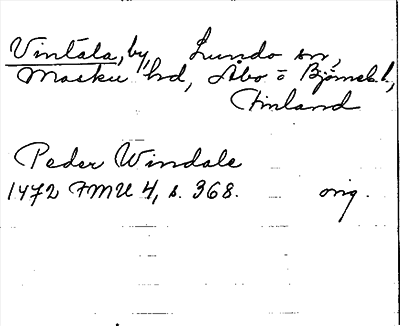 Vintala, by, Lundo sn,
Masku hd, Åbo o Björneb. l,
Finland
Peder Windale
1472 FMU 4, s. 368. orig.